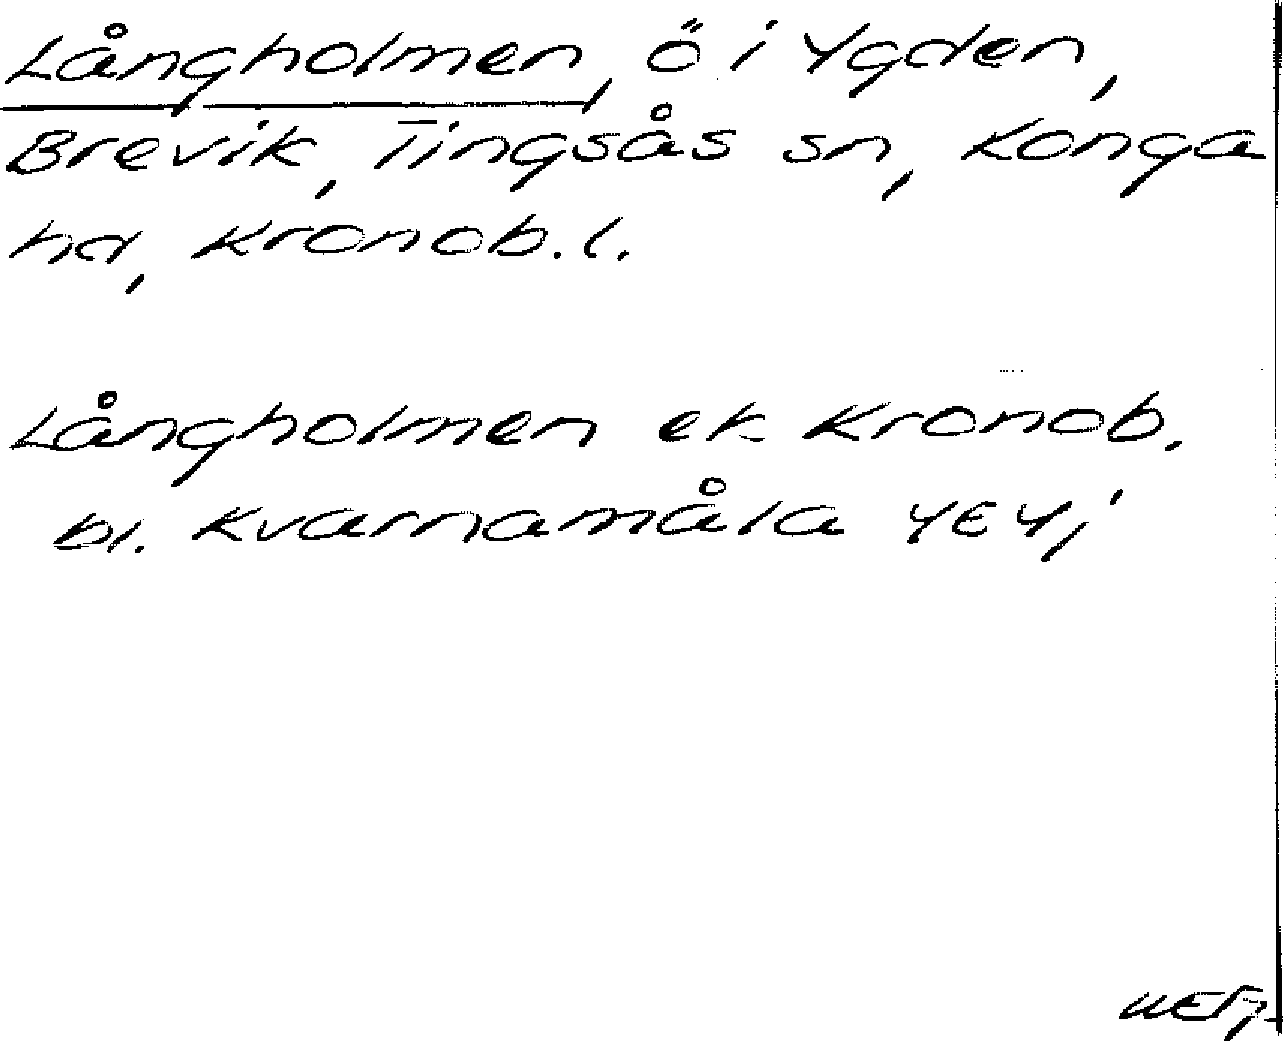 Långholmen, ö i Ygden,
Brevik, Tingsås sn, Konga
hd, Kronob. l.
Långholmen ek Kronob.
bl. Kvarnamåla